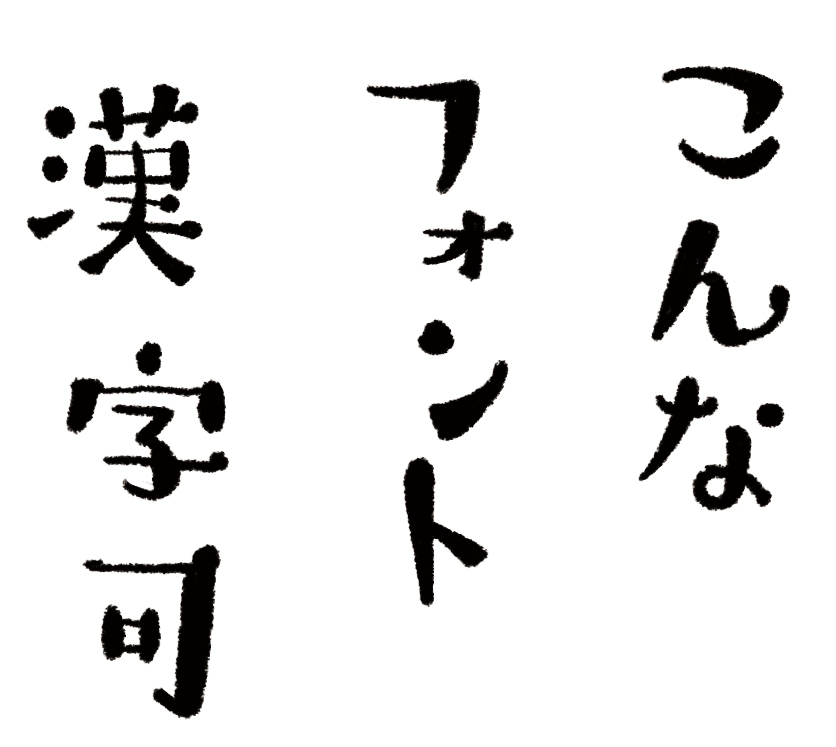 こんな
フォント
漢字可